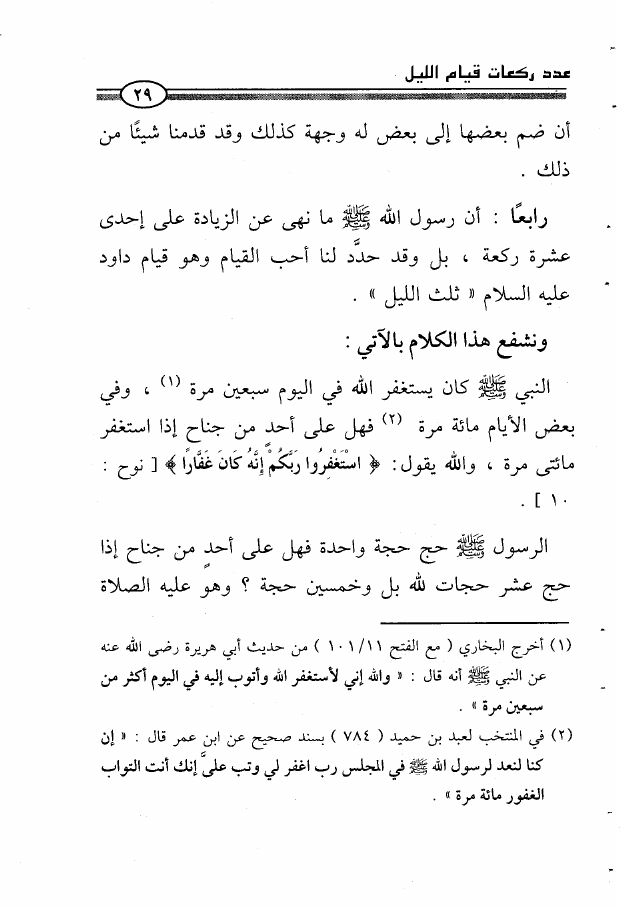 عدد ركعات قيام الليل
٢٩
أن ضم بعضها إلى بعض له وجهة كذلك وقد قدمنا شيئًا من
ذلك .
رابعًا : أن رسول الله ﷺ ما نهى عن الزيادة على إحدى
عشرة ركعة ، بل وقد حدَّد لنا أحب القيام وهو قيام داود
عليه السلام « ثلث الليل » .
ونشفع هذا الكلام بالآتي :
النبي ﷺ كان يستغفر الله في اليوم سبعين مرة (١) ، وفي
بعض الأيام مائة مرة (٢) فهل على أحدٍ من جناح إذا استغفر
مائتى مرة ، والله يقول: ﴿ اسْتَغْفِرُوا رَبَّكُمْ إِنَّهُ كَانَ غَفَّارًا ﴾ [ نوح :
١٠ ] .
الرسول ﷺ حج حجة واحدة فهل على أحدٍ من جناح إذا
حج عشر حجات لله بل وخمسين حجة ؟ وهو عليه الصلاة
(١) أخرج البخاري ( مع الفتح ١٠١/١١ ) من حديث أبي هريرة رضى الله عنه
عن النبي ﷺ أنه قال : « والله إني لأستغفر الله وأتوب إليه في اليوم أكثر من
سبعين مرة » .
(٢) في المنتخب لعبد بن حميد ( ٧٨٤ ) بسند صحيح عن ابن عمر قال : « إن
كنا لنعد لرسول الله ﷺ في المجلس رب اغفر لي وتب علىَّ إنك أنت التواب
الغفور مائة مرة » .